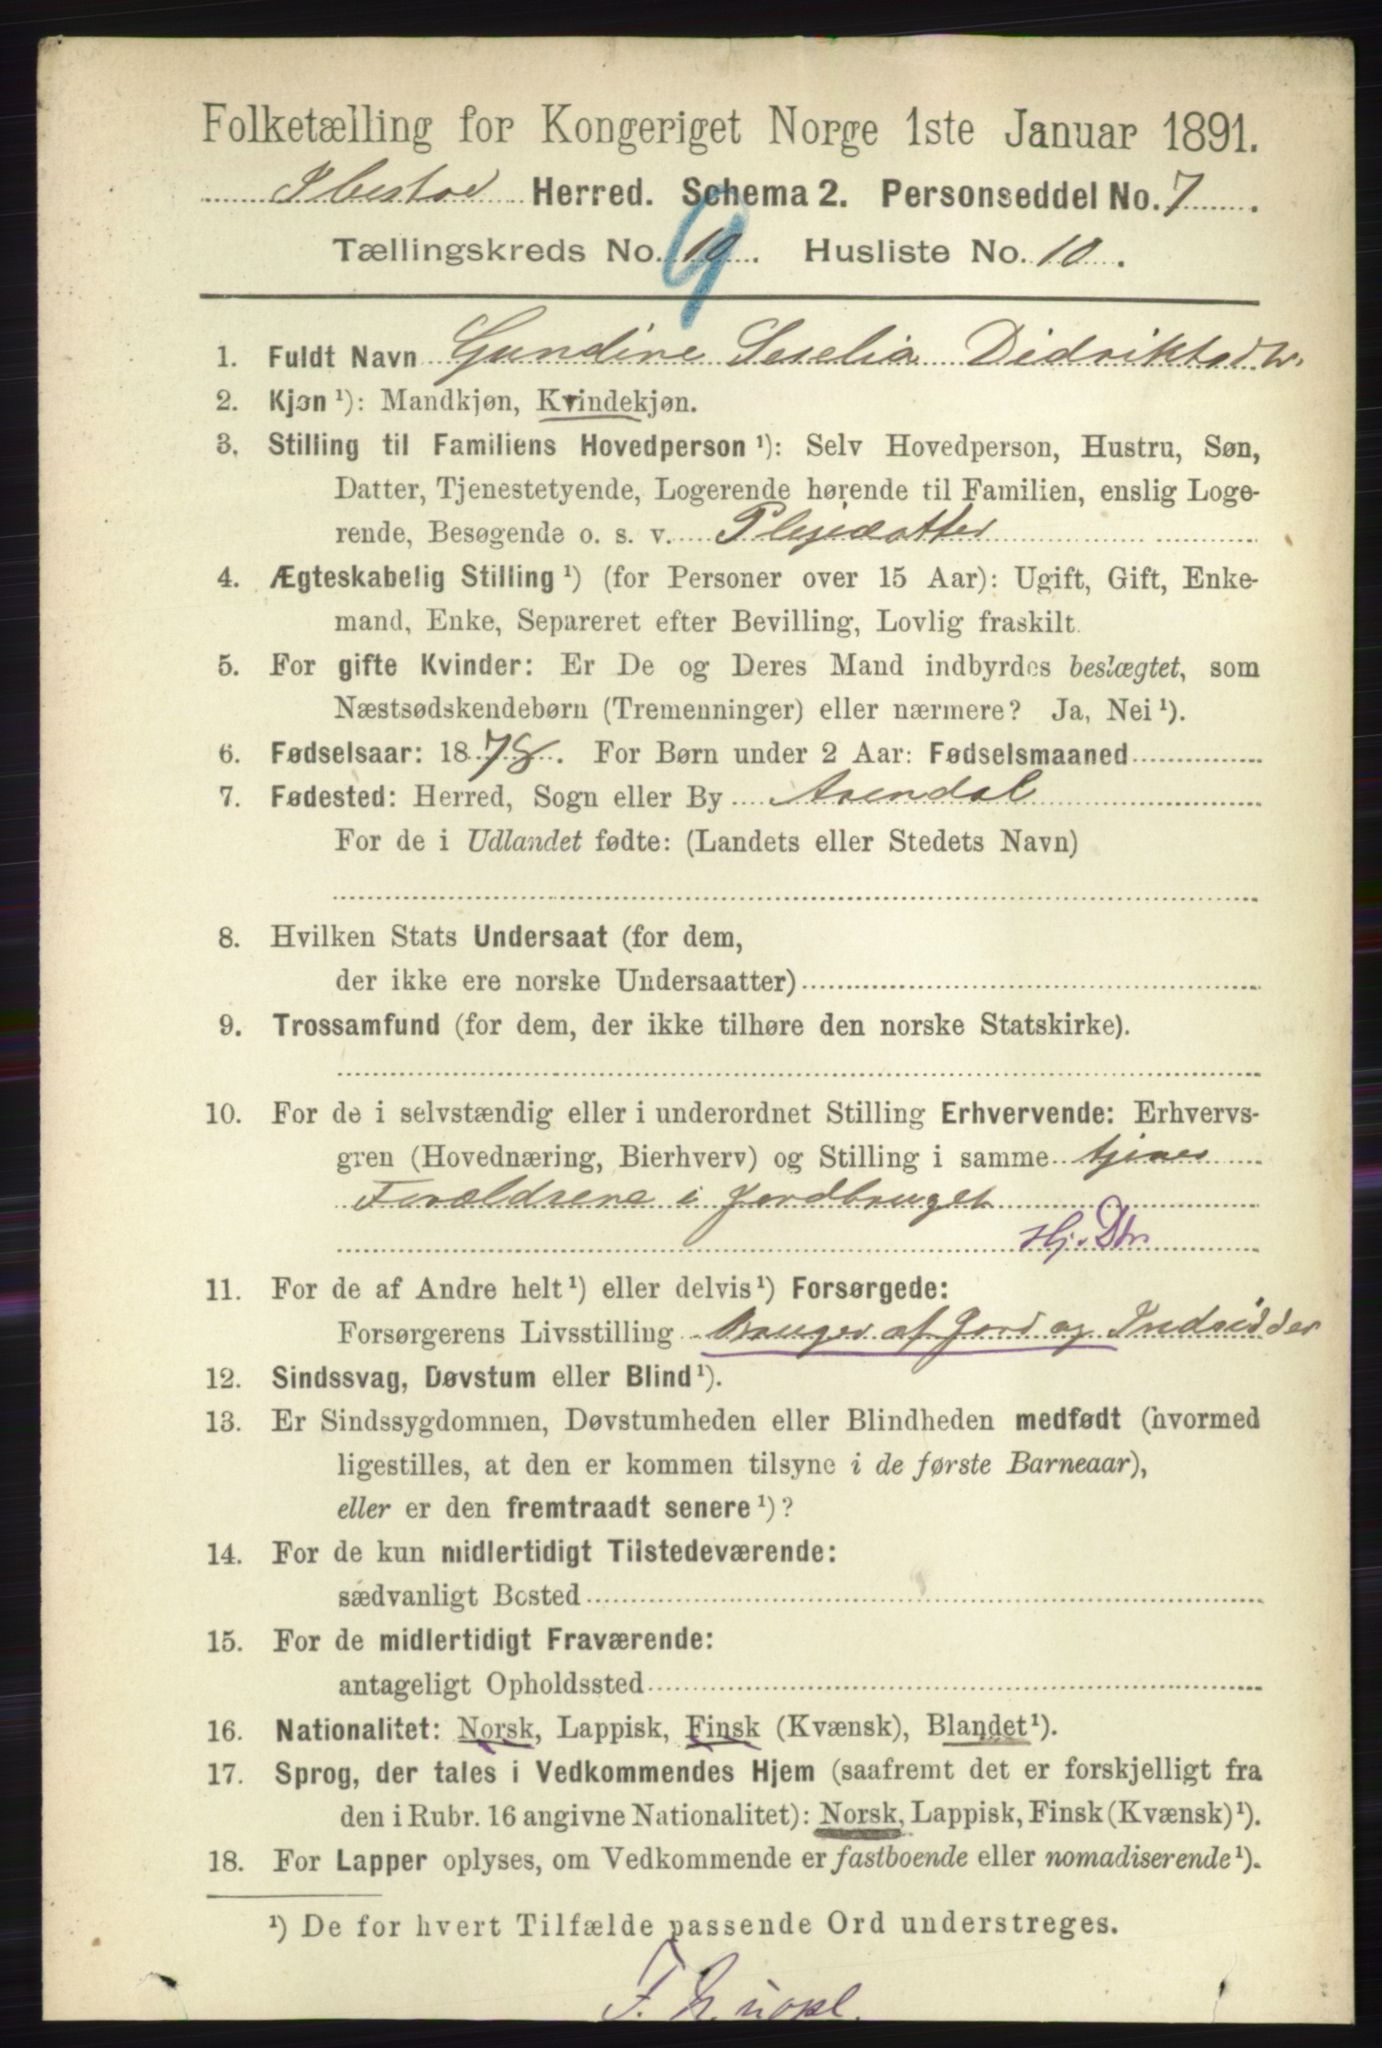 Folketælling for Kongeriget Norge 1ste Januar 1891.
Ibestad Herred. Schema 2. Personseddel No. 7.
Tællingskreds No. 10. Husliste No. 10.
9
1. Fuldt Navn Gundine Seselia Didriksdtr.
2. Kjøn ¹): Mandkjøn, Kvindekjøn.
3. Stilling til Familiens Hovedperson ¹): Selv Hovedperson, Hustru, Søn,
Datter, Tjenestetyende, Logerende hørende til Familien, enslig Loge-
rende, Besøgende o. s. v. Plejedatter
4. Ægteskabelig Stilling ¹) (for Personer over 15 Aar): Ugift, Gift, Enke-
mand, Enke, Separeret efter Bevilling, Lovlig fraskilt.
5. For gifte Kvinder: Er De og Deres Mand indbyrdes beslægtet, som
Næstsødskendebørn (Tremenninger) eller nærmere? Ja, Nei ¹).
6. Fødselsaar: 1878. For Børn under 2 Aar: Fødselsmaaned
7. Fødested: Herred, Sogn eller By Arendal
For de i Udlandet fødte: (Landets eller Stedets Navn)
8. Hvilken Stats Undersaat (for dem,
der ikke ere norske Undersaatter)
9. Trossamfund (for dem, der ikke tilhøre den norske Statskirke).
10. For de i selvstændig eller i underordnet Stilling Erhvervende: Erhvervs-
gren (Hovednæring, Bierhverv) og Stilling i samme tjener
Forældrene i Jordbruget
Hj. Dtr
11. For de af Andre helt ¹) eller delvis ¹) Forsørgede:
Forsørgerens Livsstilling Bruger af Jord og
12. Sindssvag, Døvstum eller Blind ¹).
13. Er Sindssygdommen, Døvstumheden eller Blindheden medfødt (hvormed
ligestilles, at den er kommen tilsyne i de første Barneaar),
eller er den fremtraadt senere ¹)?
14. For de kun midlertidigt Tilstedeværende:
sædvanligt Bosted
15. For de midlertidigt Fraværende:
antageligt Opholdssted
16. Nationalitet: Norsk, Lappisk, Finsk (Kvænsk), Blandet ¹).
17. Sprog, der tales i Vedkommendes Hjem (saafremt det er forskjelligt fra
den i Rubr. 16 angivne Nationalitet): Norsk, Lappisk, Finsk (Kvænsk) ¹).
18. For Lapper oplyses, om Vedkommende er fastboende eller nomadiserende ¹).
¹) De for hvert Tilfælde passende Ord understreges.